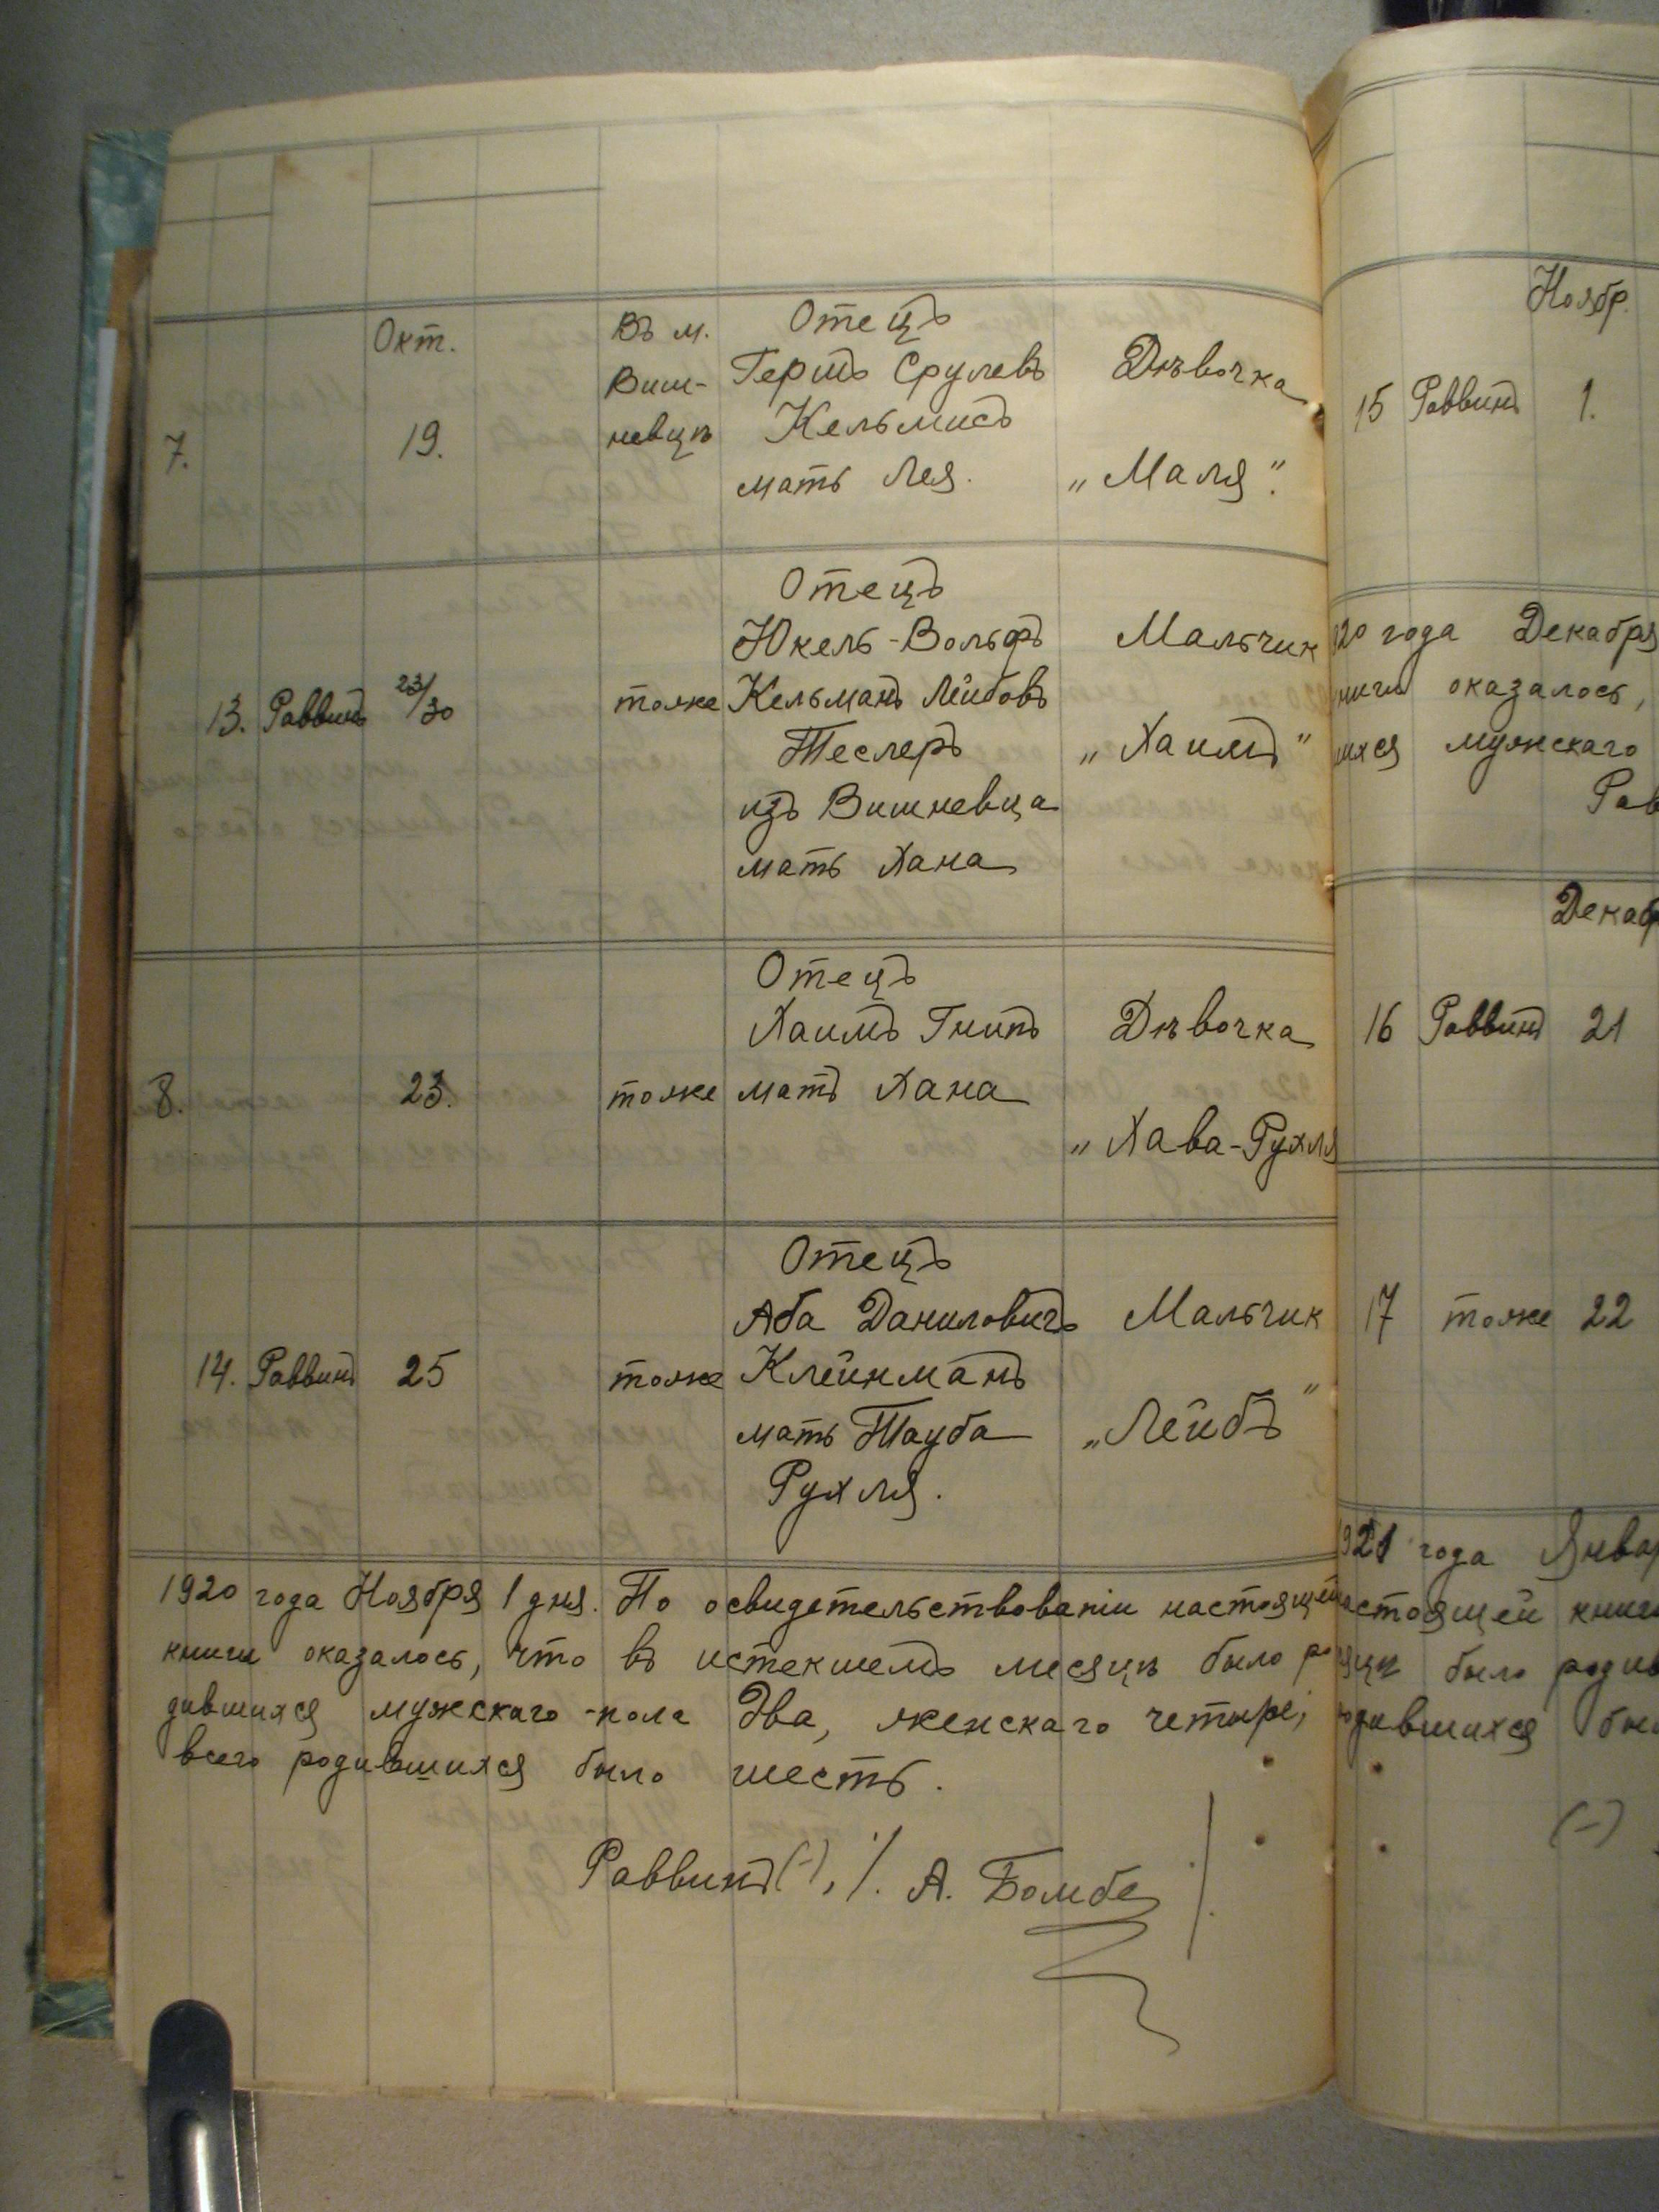 Окт.
Въ м.
Виш-
невцѣ
7.
19.
Отецъ
Гершъ Срулевъ
Кельмисъ
мать Лея.
Дѣвочка
„Маля“.
13. Раввинъ 23/30
тоже
Отецъ
Юкель-Вольфъ
Кельманъ Лейбовъ
Теслеръ
изъ Вишневца
мать Хана
Мальчик
„Хаимъ“
8.
23.
тоже
Отецъ
Хаимъ Гнипъ
матъ Хана
Дѣвочка
„Хава-Рухля
14. Раввинъ 25
тоже
Отецъ
Аба Даниловичъ
Клейнманъ
мать Тауба
Рухля.
Мальчик
„Лейбъ“
1920 года Ноября 1 дня. По освидетельствованіи настоящей
книги оказалось, что въ истекшемъ месяцѣ было ро
дившихся мужскаго пола два, женскаго четыре;
всего родившихся было шесть.
Раввинъ (-), ./. А. Бомбе ./.
Ноябр.
15 Раввинъ 1.
920 года Декабря
книги оказалось,
шихся мужскаго
Рав
Декаб
16 Раввинъ 21
17 тоже 22
1921 года Январ
настоящей книги
сяцѣ было родив
родившихся был
(-)